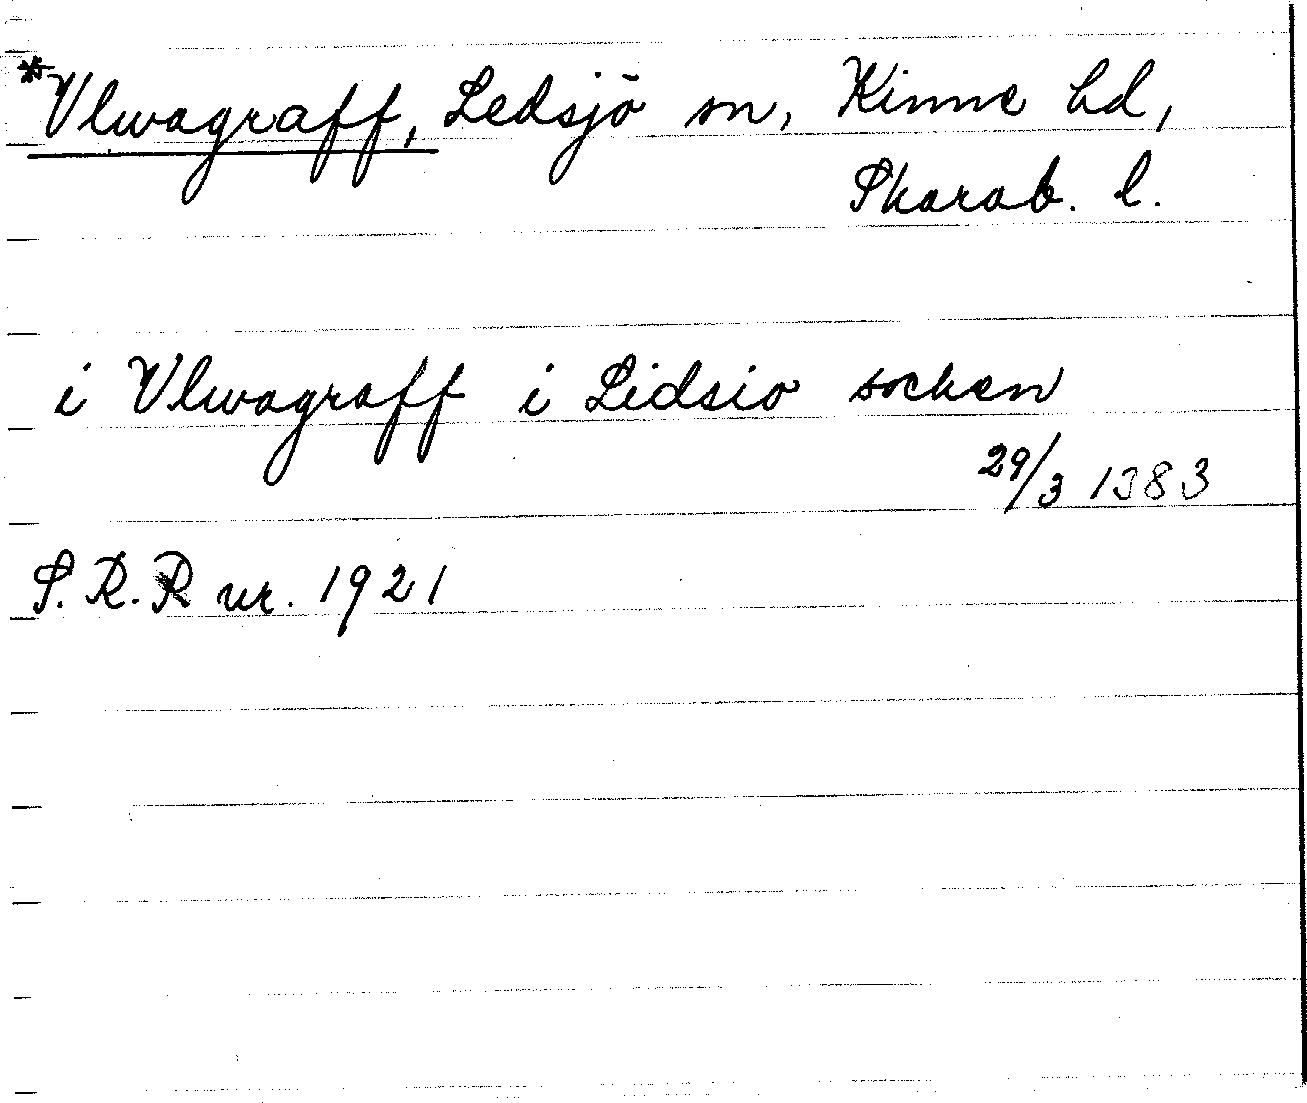 *Vlwagraff, Ledsjö sn, Kinne hd,
Skarab. l.
i Vlwagraff i Lidsio socken
29/3 1383
S.R.P. nr. 1921